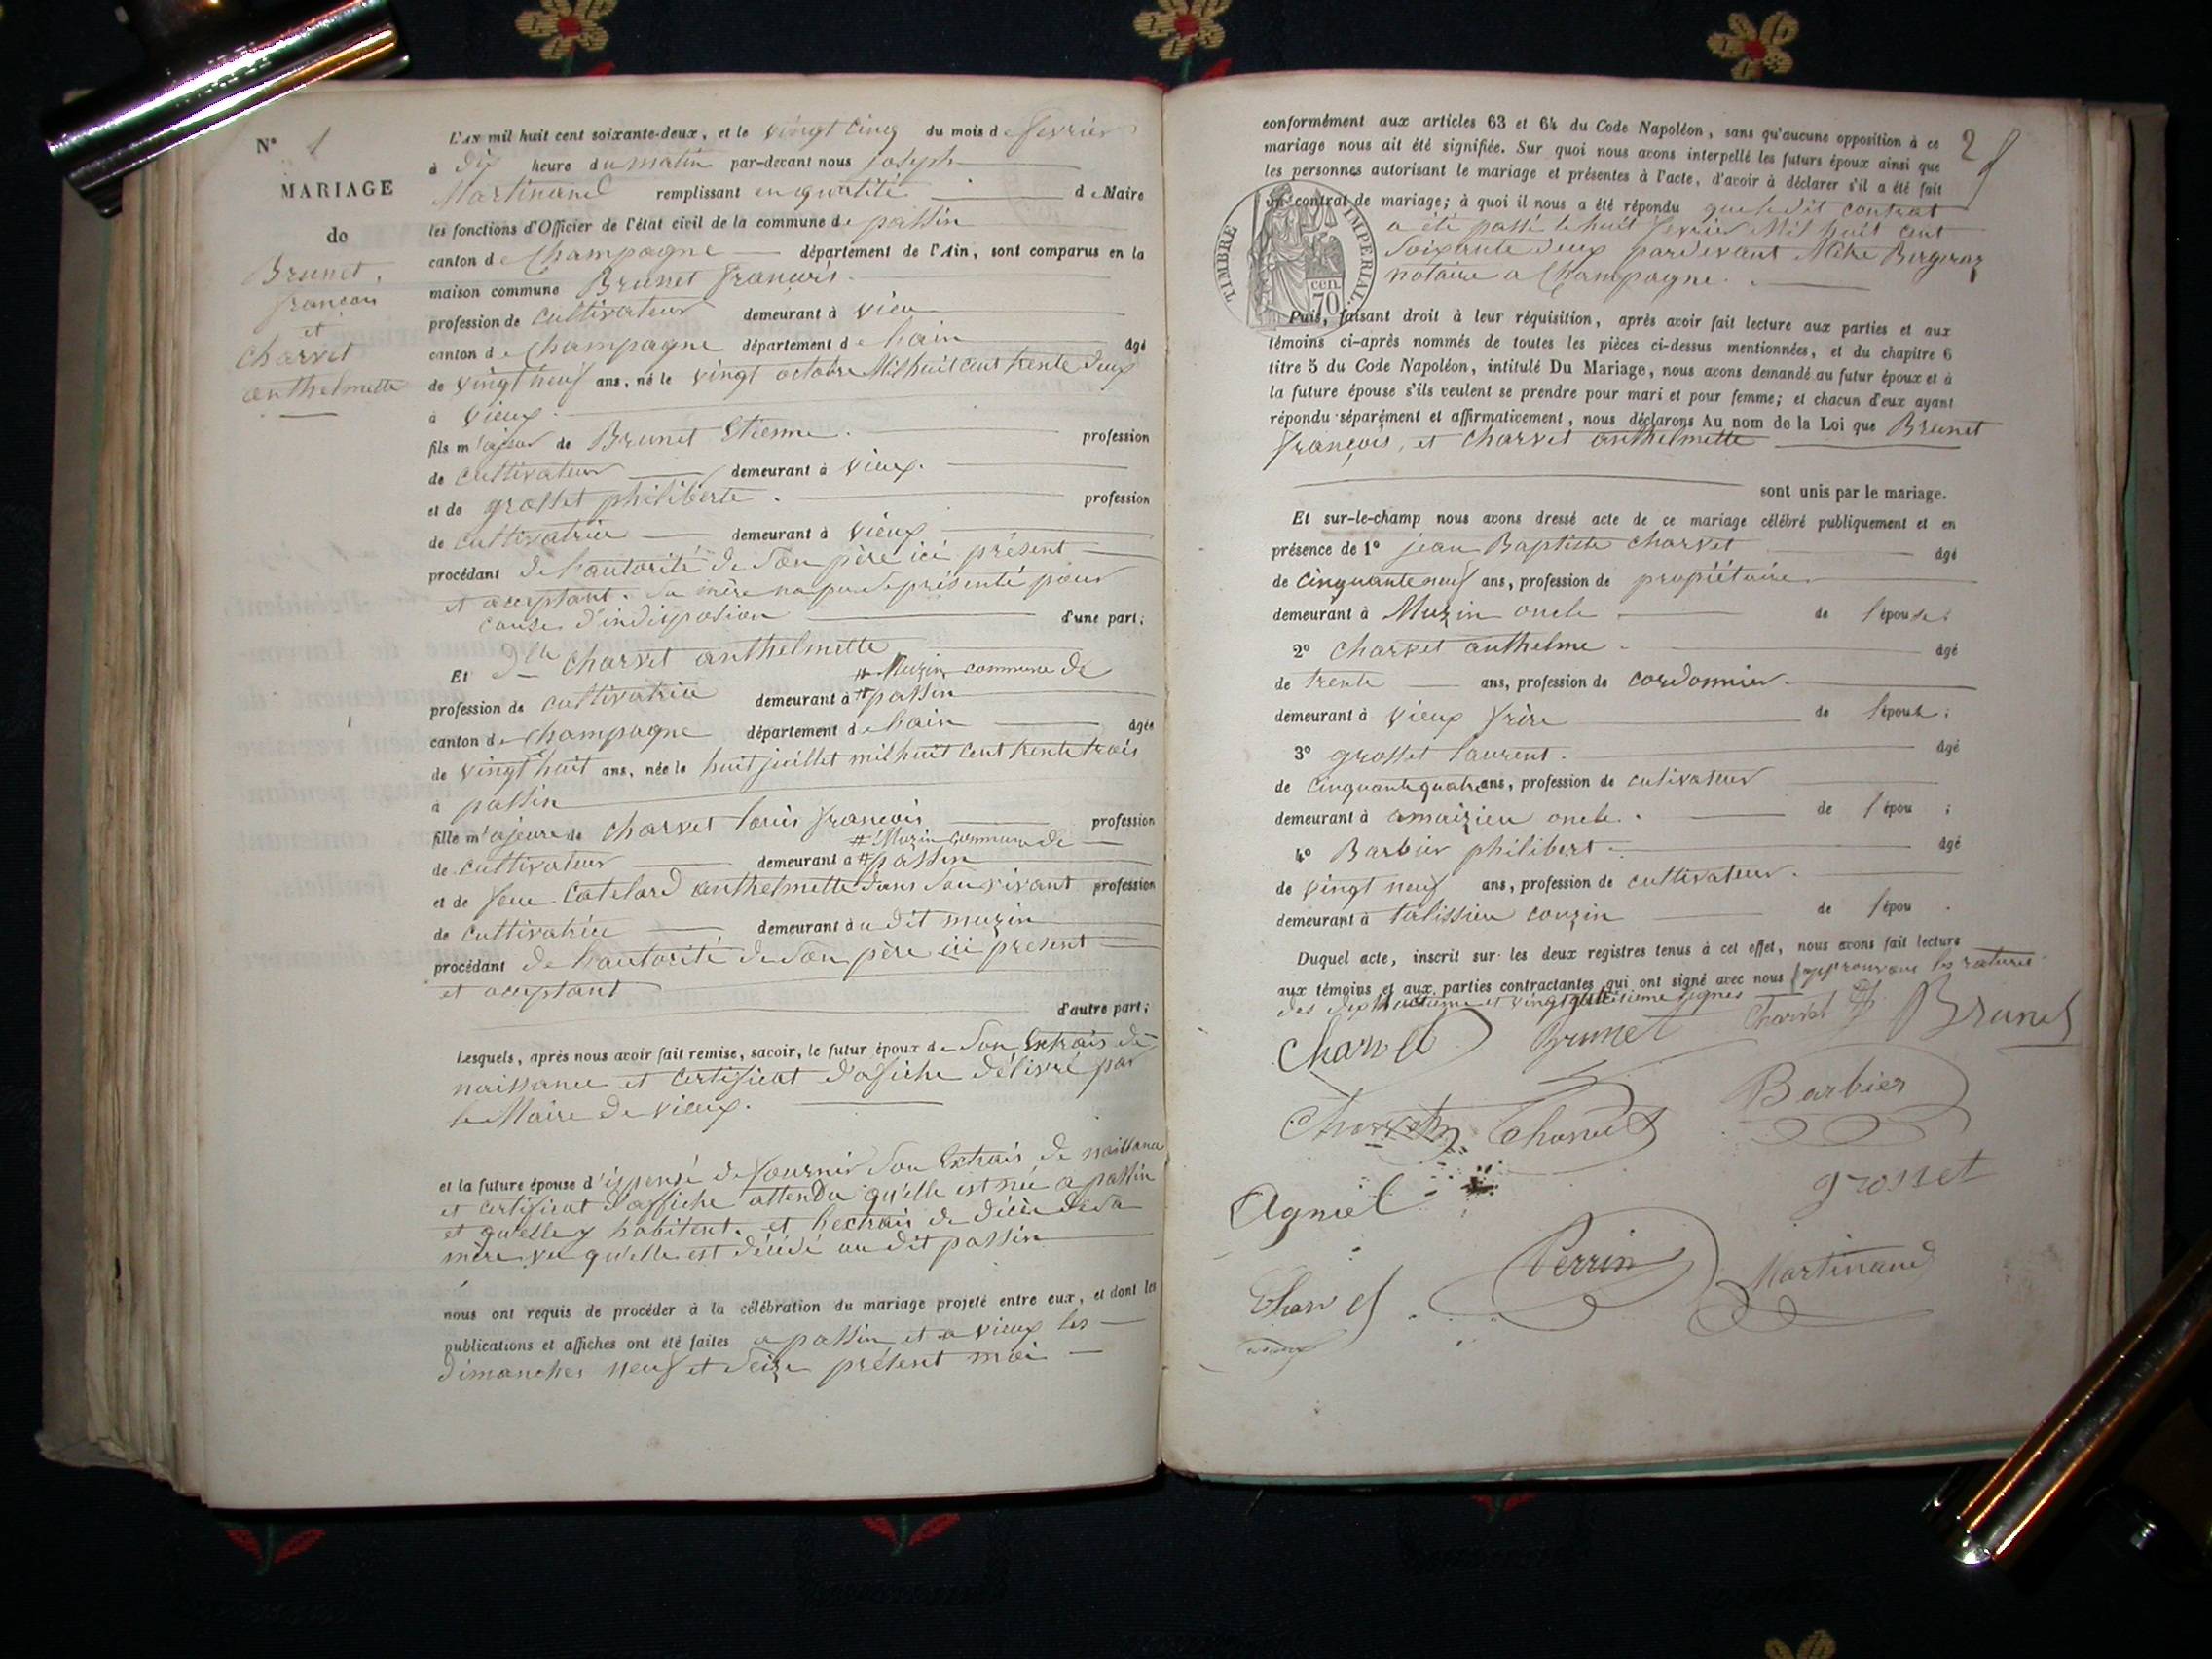 N° 1
MARIAGE
de
Brunet,
françois
et
Charvet
anthelmette
L'AN mil huit cent soixante-deux, et le vingt cinq du mois de fevrier
à dix heure du matin par-devant nous joseph
Martinand remplissant en qualité de Maire
les fonctions d'Officier de l'état civil de la commune de passin
canton de Champagne département de l'Ain, sont comparus en la
maison commune Brunet francois.
profession de cultivateur demeurant à vieu
canton de Champagne département de lain âgé
de vingt neuf ans, né le vingt octobre Mil huit cent trente deux
à vieux
fils majeur de Brunet Etienne. profession
de cultivateur demeurant à vieux.
et de grosset philiberte. profession
de cultivatrice demeurant à vieux
procédant de lautorité de son père ici présent
et aceptant. sa mère na pu se présenté pour
cause d'indisposion d'une part;
Et Dlle Charvet anthelmette
# Muzin commune de
profession de cultivatrice demeurant à # passin
canton de Champagne département de lain âgée
de vingt huit ans, née le huit juillet mil huit cent trente trois
à passin
fille majeure de Charvet louis francois profession
# Muzin commune de
de cultivateur demeurant à # passin
et de feue Catelard anthelmette dans son vivant profession
de cultivatrice demeurant au dit muzin
procédant de lautorité de son père ici present
et aceptant
d'autre part;
Lesquels, après nous avoir fait remise, savoir, le futur époux de son Extrais de
naissance et certificat d'afiche délivré par
le Maire de vieux.
et la future épouse d'ispensé de fournir son Extrais de naissance
et certificat d'affiche attendu qu'elle est née a passin
et qu'elle y habitent. et lectrais de décès de sa
mère vu qu'elle est décédé au dit passin
nous ont requis de procéder à la célébration du mariage projeté entre eux, et dont les
publications et affiches ont été faites a passin et a vieux les
dimanches neuf et seize présent moi
2
conformément aux articles 63 et 64 du Code Napoléon, sans qu'aucune opposition à ce
mariage nous ait été signifiée. Sur quoi nous avons interpellé les futurs époux ainsi que
les personnes autorisant le mariage et présentes à l'acte, d'avoir à déclarer s'il a été fait
un contrat de mariage; à quoi il nous a été répondu que ledit contrat
a été passé le huit fevrier Mil huit cent
soixante deux pardevant Maitre
notaire a Champagne.
TIMBRE IMPERIAL
70 cen.
Puis, faisant droit à leur réquisition, après avoir fait lecture aux parties et aux
témoins ci-après nommés de toutes les pièces ci-dessus mentionnées, et du chapitre 6
titre 5 du Code Napoléon, intitulé Du Mariage, nous avons demandé au futur époux et à
la future épouse s'ils veulent se prendre pour mari et pour femme; et chacun d'eux ayant
répondu séparément et affirmativement, nous déclarons Au nom de la Loi que Brunet
françois, et Charvet anthelmette
sont unis par le mariage.
Et sur-le-champ nous avons dressé acte de ce mariage célébré publiquement et en
présence de 1° jean Baptiste Charvet âgé
de Cinquante neuf ans, profession de propiétaire
demeurant à Muzin oncle de l'épouse;
2° Charvet anthelme âgé
de trente ans, profession de cordonnier
demeurant à vieux frère de l'épouse;
3° grosset laurent. âgé
de cinquante quatre ans, profession de cultivateur
demeurant à amaizieu oncle. de l'épou ;
4° Barbier philibert âgé
de vingt neuf ans, profession de cultivateur.
demeurant à talissieu couzin de l'épou .
Duquel acte, inscrit sur les deux registres tenus à cet effet, nous avons fait lecture
aux témoins et aux parties contractantes qui ont signé avec nous approuvons les ratures
des dixhuitieme et lignes
Charvet Brunet Charvet Brunet
Charvet Barbier
Agniel grosset
Perrin Martinand
Charvet